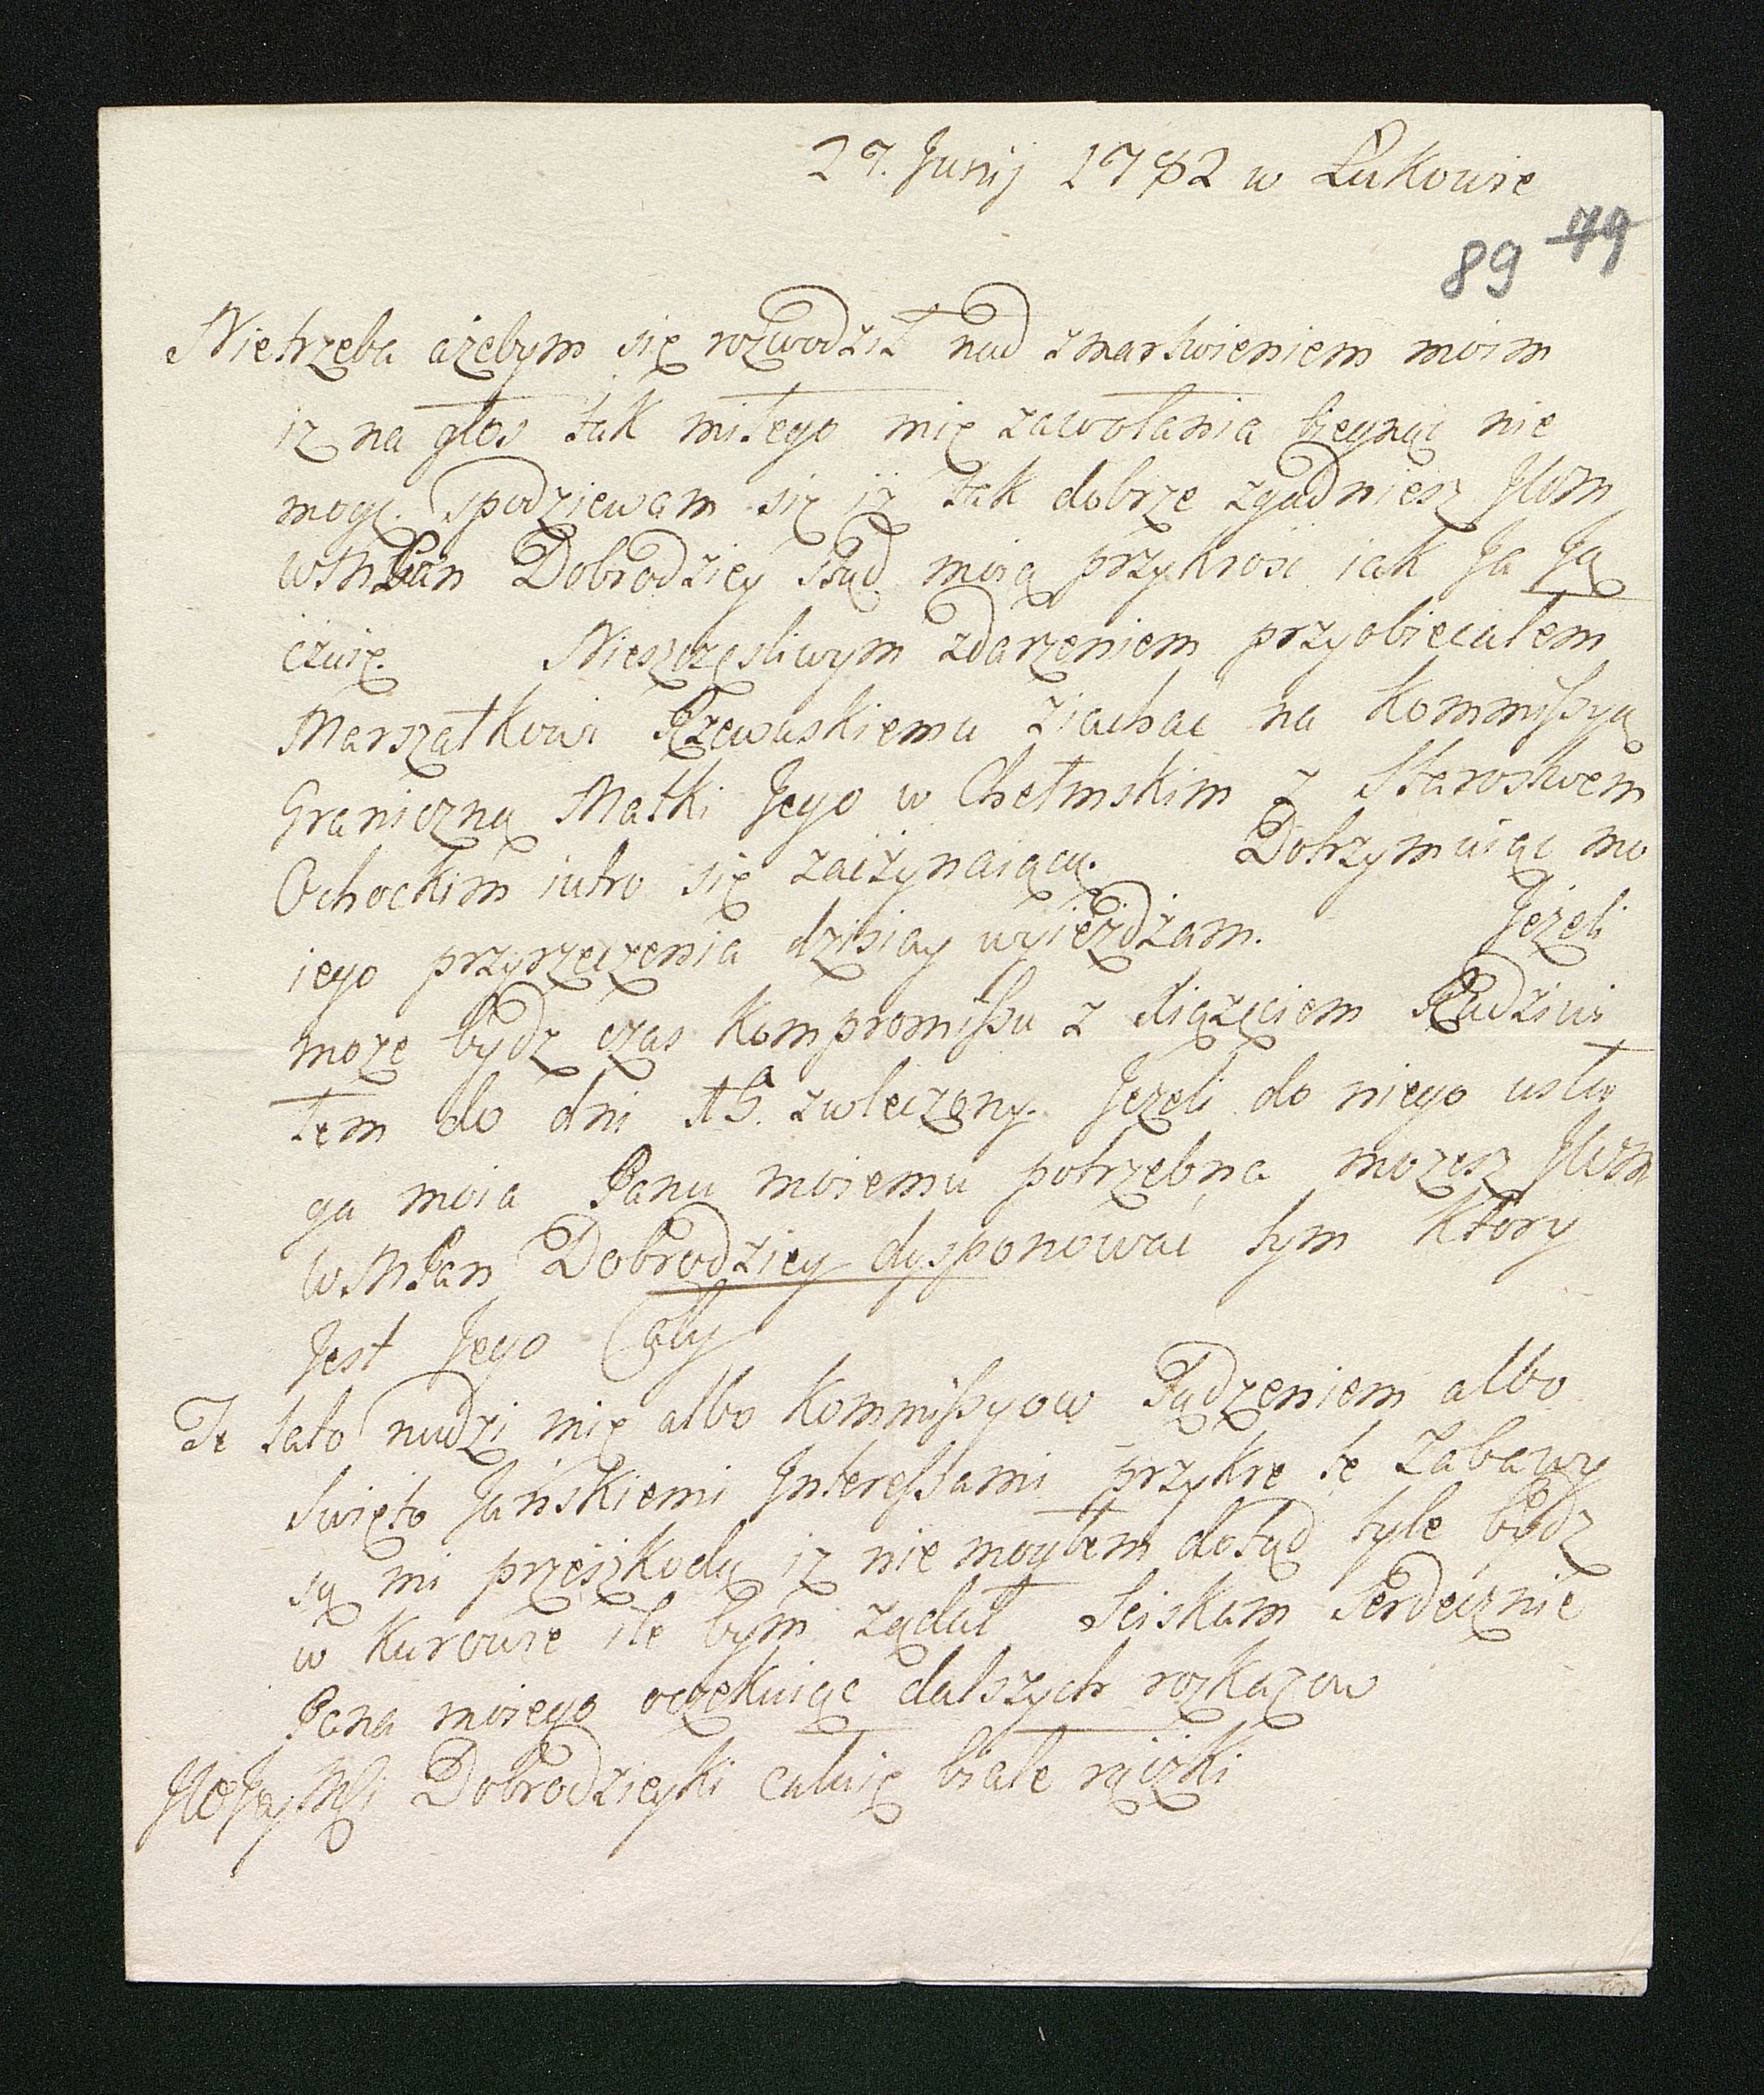 27. Junij 1782 w Łukowie
89 79
Nietrzeba ażebym się rozwodził nad zmartwieniem moim
iż na głos tak miłego mię zawołania biegnąć nie
mogę. Spodziewam się iż tak dobrze zgadniesz JWM
WMPan Dobrodziey stąd moią przykrość iak Ja Ją
czuię. Nieszczęsliwym zdarzeniem przyobiecałem
Marszałkowi Rzewuskiemu ziachać na Kommissyą
Graniczną Matki Jego w Chełmskim z Starostwem
Ochockim iutro się zaczynaiącą. Dotrzymuiąc mo
iego przyrzeczenia dzisiay wyieżdżam. Jeżeli
może bydz czas Kompromissu z Xiążęciem Radziwi
łłem do dni 15. zwleczony. Jeżeli do niego usłu
ga moia Panu moiemu potrzebna możesz JWM
WMPan Dobrodziey dysponować tym który
Jest Jego Cały
Te lato nudzi mię albo Kommissyow Sądzeniem albo
Swięto Jańskiemi Interessami przykre te zabawy
są mi przeszkodą iż nie mogłem dotąd tyle bydz
w Kurowie ile bym żądał Sciskam Serdecznie
Pana moiego oczekuiąc dalszych rozkazow
Dobrodzieyki całuię białe rączki